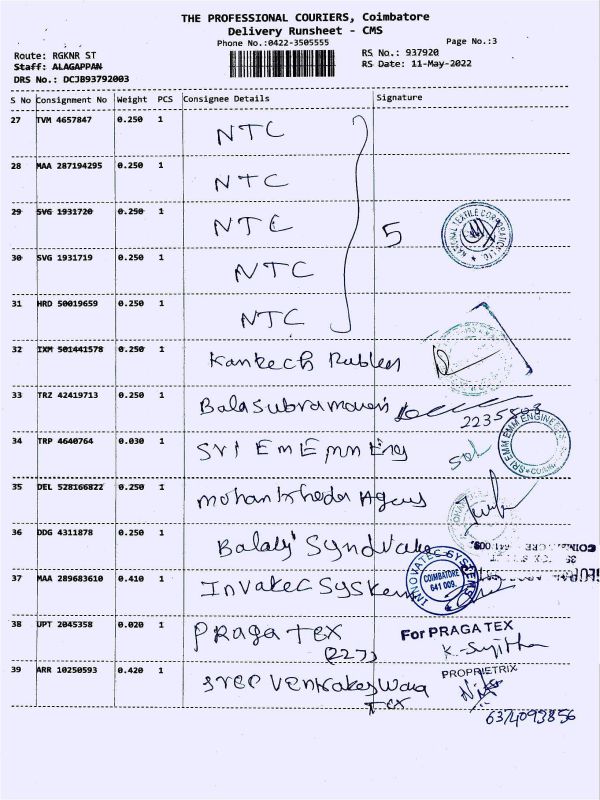 THE PROFESSIONAL COURIERS, Coimbatore
Delivery Runsheet - CMS
Phone No.:0422-3505555 Page No.:3
Route: RGKNR ST RS No.: 937920
Staff: ALAGAPPAN RS Date: 11-May-2022
DRS No.: DCJB93792003
S No Consignment No Weight PCS Consignee Details Signature
27 TVM 4657847 0.250 1 NTC
28 MAA 287194295 0.250 1 NTC
29 SVG 1931720 0.250 1 NTC 5 NATIONAL TEXTILE CORPORATION LTD.
30 SVG 1931719 0.250 1 NTC
31 HRD 50019659 0.250 1 NTC
32 IXM 501441578 0.250 1
33 TRZ 42419713 0.250 1
34 TRP 4640764 0.030 1 Sri Em Emm Eng SRI EMM EMM ENGINEERS
35 DEL 528166822 0.250 1
36 DDG 4311878 0.250 1
37 MAA 289683610 0.410 1 INNOVATES SYSTEMS COIMBATORE 641 009.
38 UPT 2045358 0.020 1 PRAGA TEX For PRAGA TEX
(227) K. Sujitha
PROPRIETRIX
39 ARR 10250593 0.420 1
Tex 6374093856